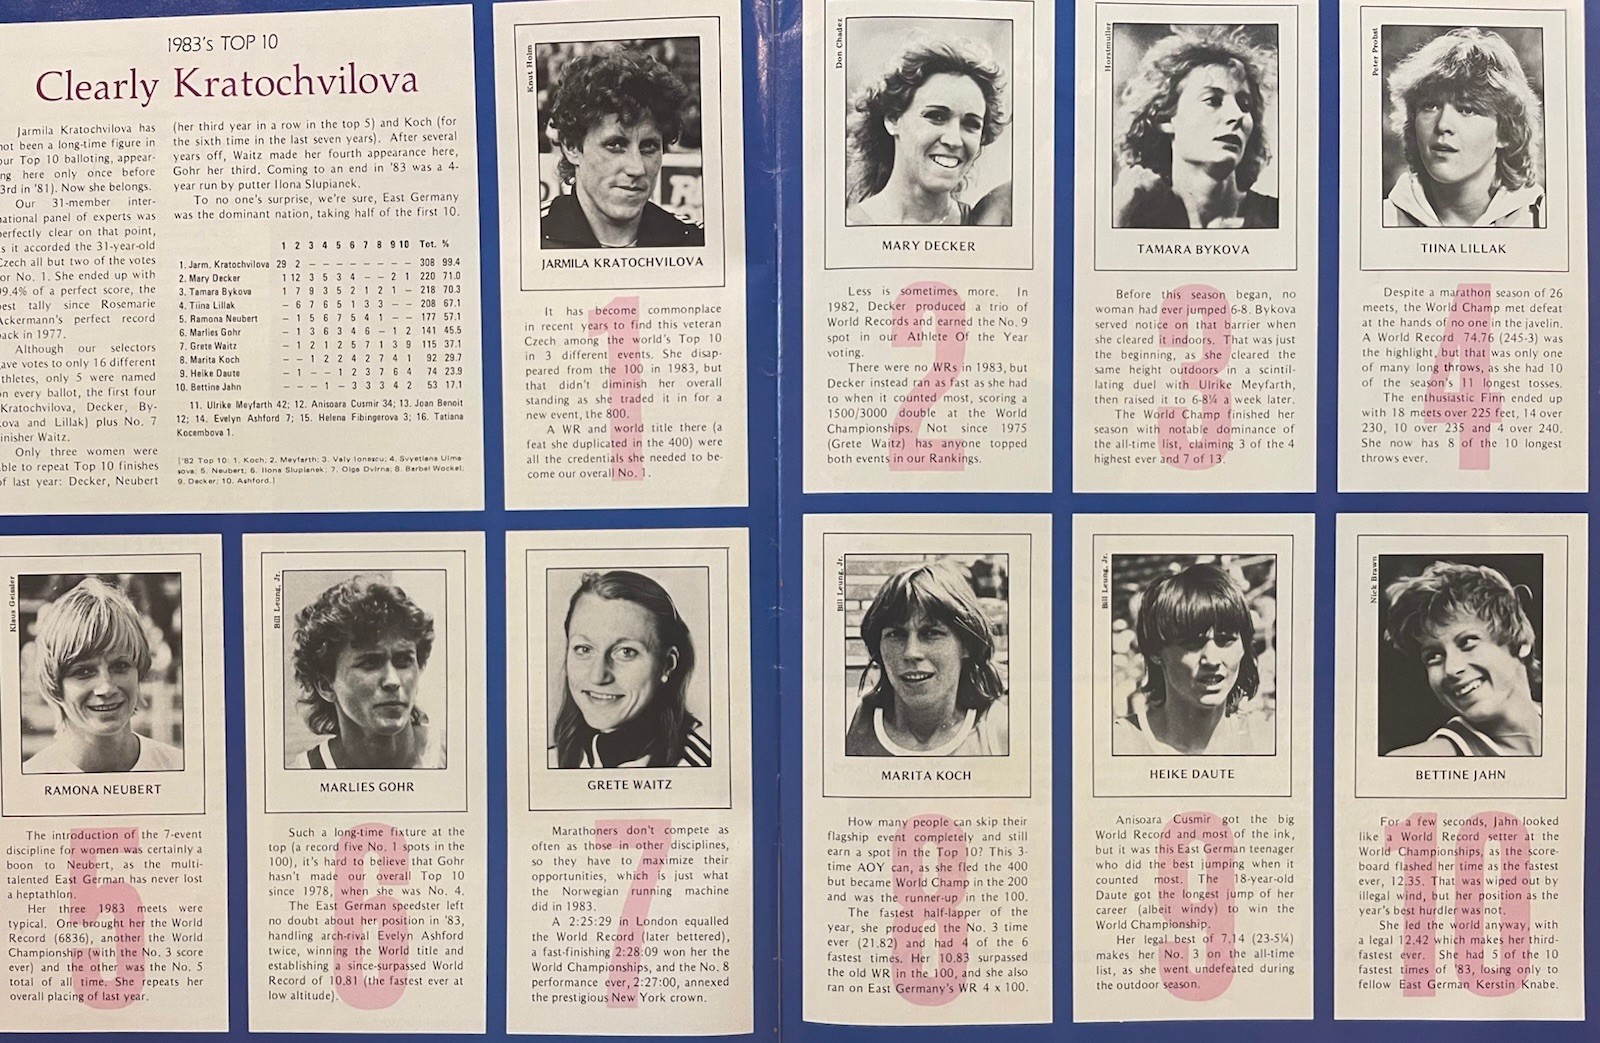 1983's TOP 10
Clearly Kratochvilova
Jarmila Kratochvilova has
not been a long-time figure in
our Top 10 balloting, appear-
ing here only once before
3rd in '81). Now she belongs.
Our 31-member inter-
national panel of experts was
perfectly clear on that point,
as it accorded the 31-year-old
Czech all but two of the votes
for No. 1. She ended up with
99.4% of a perfect score, the
best tally since Rosemarie
Ackermann's perfect record
back in 1977.
Although our selectors
gave votes to only 16 different
athletes, only 5 were named
on every ballot, the first four
Kratochvilova, Decker, By-
kova and Lillak) plus No. 7
finisher Waitz.
Only three women were
able to repeat Top 10 finishes
of last year: Decker, Neubert
(her third year in a row in the top 5) and Koch (for
the sixth time in the last seven years). After several
years off, Waitz made her fourth appearance here,
Gohr her third. Coming to an end in '83 was a 4-
year run by putter Ilona Slupianek.
To no one's surprise, we're sure, East Germany
was the dominant nation, taking half of the first 10.
1 2 3 4 5 6 7 8 9 10 Tot. %
1. Jarm. Kratochvilova 29 2 – – – – – – – – 308 99.4
2. Mary Decker 1 12 3 5 3 4 – – 2 1 220 71.0
3. Tamara Bykova 1 7 9 3 5 2 1 2 1 – 218 70.3
4. Tiina Lillak – 6 7 6 5 1 3 3 – – 208 67.1
5. Ramona Neubert – 1 5 6 7 5 4 1 – – 177 57.1
6. Marlies Gohr – 1 3 6 3 4 6 – 1 2 141 45.5
7. Grete Waitz – 1 2 1 2 5 7 1 3 9 115 37.1
8. Marita Koch – – 1 2 2 4 2 7 4 1 92 29.7
9. Heike Daute – – 1 – 1 2 3 7 6 4 74 23.9
10. Bettine Jahn – – – 1 – 3 3 3 4 2 53 17.1
11. Ulrike Meyfarth 42; 12. Anisoara Cusmir 34; 13. Joan Benoit
12; 14. Evelyn Ashford 7; 15. Helena Fibingerova 3; 16. Tatiana
Kocembova 1.
['82 Top 10: 1. Koch; 2. Meyfarth; 3. Valy Ionescu; 4. Svyetlana Ulma
sova; 5. Neubert; 6. Ilona Slupianek; 7. Olga Dvirna; 8. Barbel Wockel;
9. Decker; 10. Ashford.]
Knut Holm
JARMILA KRATOCHVILOVA
1
It has become commonplace
in recent years to find this veteran
Czech among the world's Top 10
in 3 different events. She disap-
peared from the 100 in 1983, but
that didn't diminish her overall
standing as she traded it in for a
new event, the 800.
A WR and world title there (a
feat she duplicated in the 400) were
all the credentials she needed to be-
come our overall No. 1.
Don Chadez
MARY DECKER
2
Less is sometimes more. In
1982, Decker produced a trio of
World Records and earned the No. 9
spot in our Athlete Of the Year
voting.
There were no WRs in 1983, but
Decker instead ran as fast as she had
to when it counted most, scoring a
1500/3000 double at the World
Championships. Not since 1975
(Grete Waitz) has anyone topped
both events in our Rankings.
Horstmuller
TAMARA BYKOVA
3
Before this season began, no
woman had ever jumped 6-8. Bykova
served notice on that barrier when
she cleared it indoors. That was just
the beginning, as she cleared the
same height outdoors in a scintil-
lating duel with Ulrike Meyfarth,
then raised it to 6-8¼ a week later.
The World Champ finished her
season with notable dominance of
the all-time list, claiming 3 of the 4
highest ever and 7 of 13.
Peter Probst
TIINA LILLAK
4
Despite a marathon season of 26
meets, the World Champ met defeat
at the hands of no one in the javelin.
A World Record 74.76 (245-3) was
the highlight, but that was only one
of many long throws, as she had 10
of the season's 11 longest tosses.
The enthusiastic Finn ended up
with 18 meets over 225 feet, 14 over
230, 10 over 235 and 4 over 240.
She now has 8 of the 10 longest
throws ever.
Klaus Geissler
RAMONA NEUBERT
5
The introduction of the 7-event
discipline for women was certainly a
boon to Neubert, as the multi-
talented East German has never lost
a heptathlon.
Her three 1983 meets were
typical. One brought her the World
Record (6836), another the World
Championship (with the No. 3 score
ever) and the other was the No. 5
total of all time. She repeats her
overall placing of last year.
Bill Leung, Jr.
MARLIES GOHR
6
Such a long-time fixture at the
top (a record five No. 1 spots in the
100), it's hard to believe that Gohr
hasn't made our overall Top 10
since 1978, when she was No. 4.
The East German speedster left
no doubt about her position in '83,
handling arch-rival Evelyn Ashford
twice, winning the World title and
establishing a since-surpassed World
Record of 10.81 (the fastest ever at
low altitude).
GRETE WAITZ
7
Marathoners don't compete as
often as those in other disciplines,
so they have to maximize their
opportunities, which is just what
the Norwegian running machine
did in 1983.
A 2:25:29 in London equalled
the World Record (later bettered),
a fast-finishing 2:28:09 won her the
World Championships, and the No. 8
performance ever, 2:27:00, annexed
the prestigious New York crown.
Bill Leung, Jr.
MARITA KOCH
8
How many people can skip their
flagship event completely and still
earn a spot in the Top 10? This 3-
time AOY can, as she fled the 400
but became World Champ in the 200
and was the runner-up in the 100.
The fastest half-lapper of the
year, she produced the No. 3 time
ever (21.82) and had 4 of the 6
fastest times. Her 10.83 surpassed
the old WR in the 100, and she also
ran on East Germany's WR 4 x 100.
Bill Leung, Jr.
HEIKE DAUTE
9
Anisoara Cusmir got the big
World Record and most of the ink,
but it was this East German teenager
who did the best jumping when it
counted most. The 18-year-old
Daute got the longest jump of her
career (albeit windy) to win the
World Championship.
Her legal best of 7.14 (23-5¼)
makes her No. 3 on the all-time
list, as she went undefeated during
the outdoor season.
Nick Brawn
BETTINE JAHN
10
For a few seconds, Jahn looked
like a World Record setter at the
World Championships, as the score-
board flashed her time as the fastest
ever, 12.35. That was wiped out by
illegal wind, but her position as the
year's best hurdler was not.
She led the world anyway, with
a legal 12.42 which makes her third-
fastest ever. She had 5 of the 10
fastest times of '83, losing only to
fellow East German Kerstin Knabe.